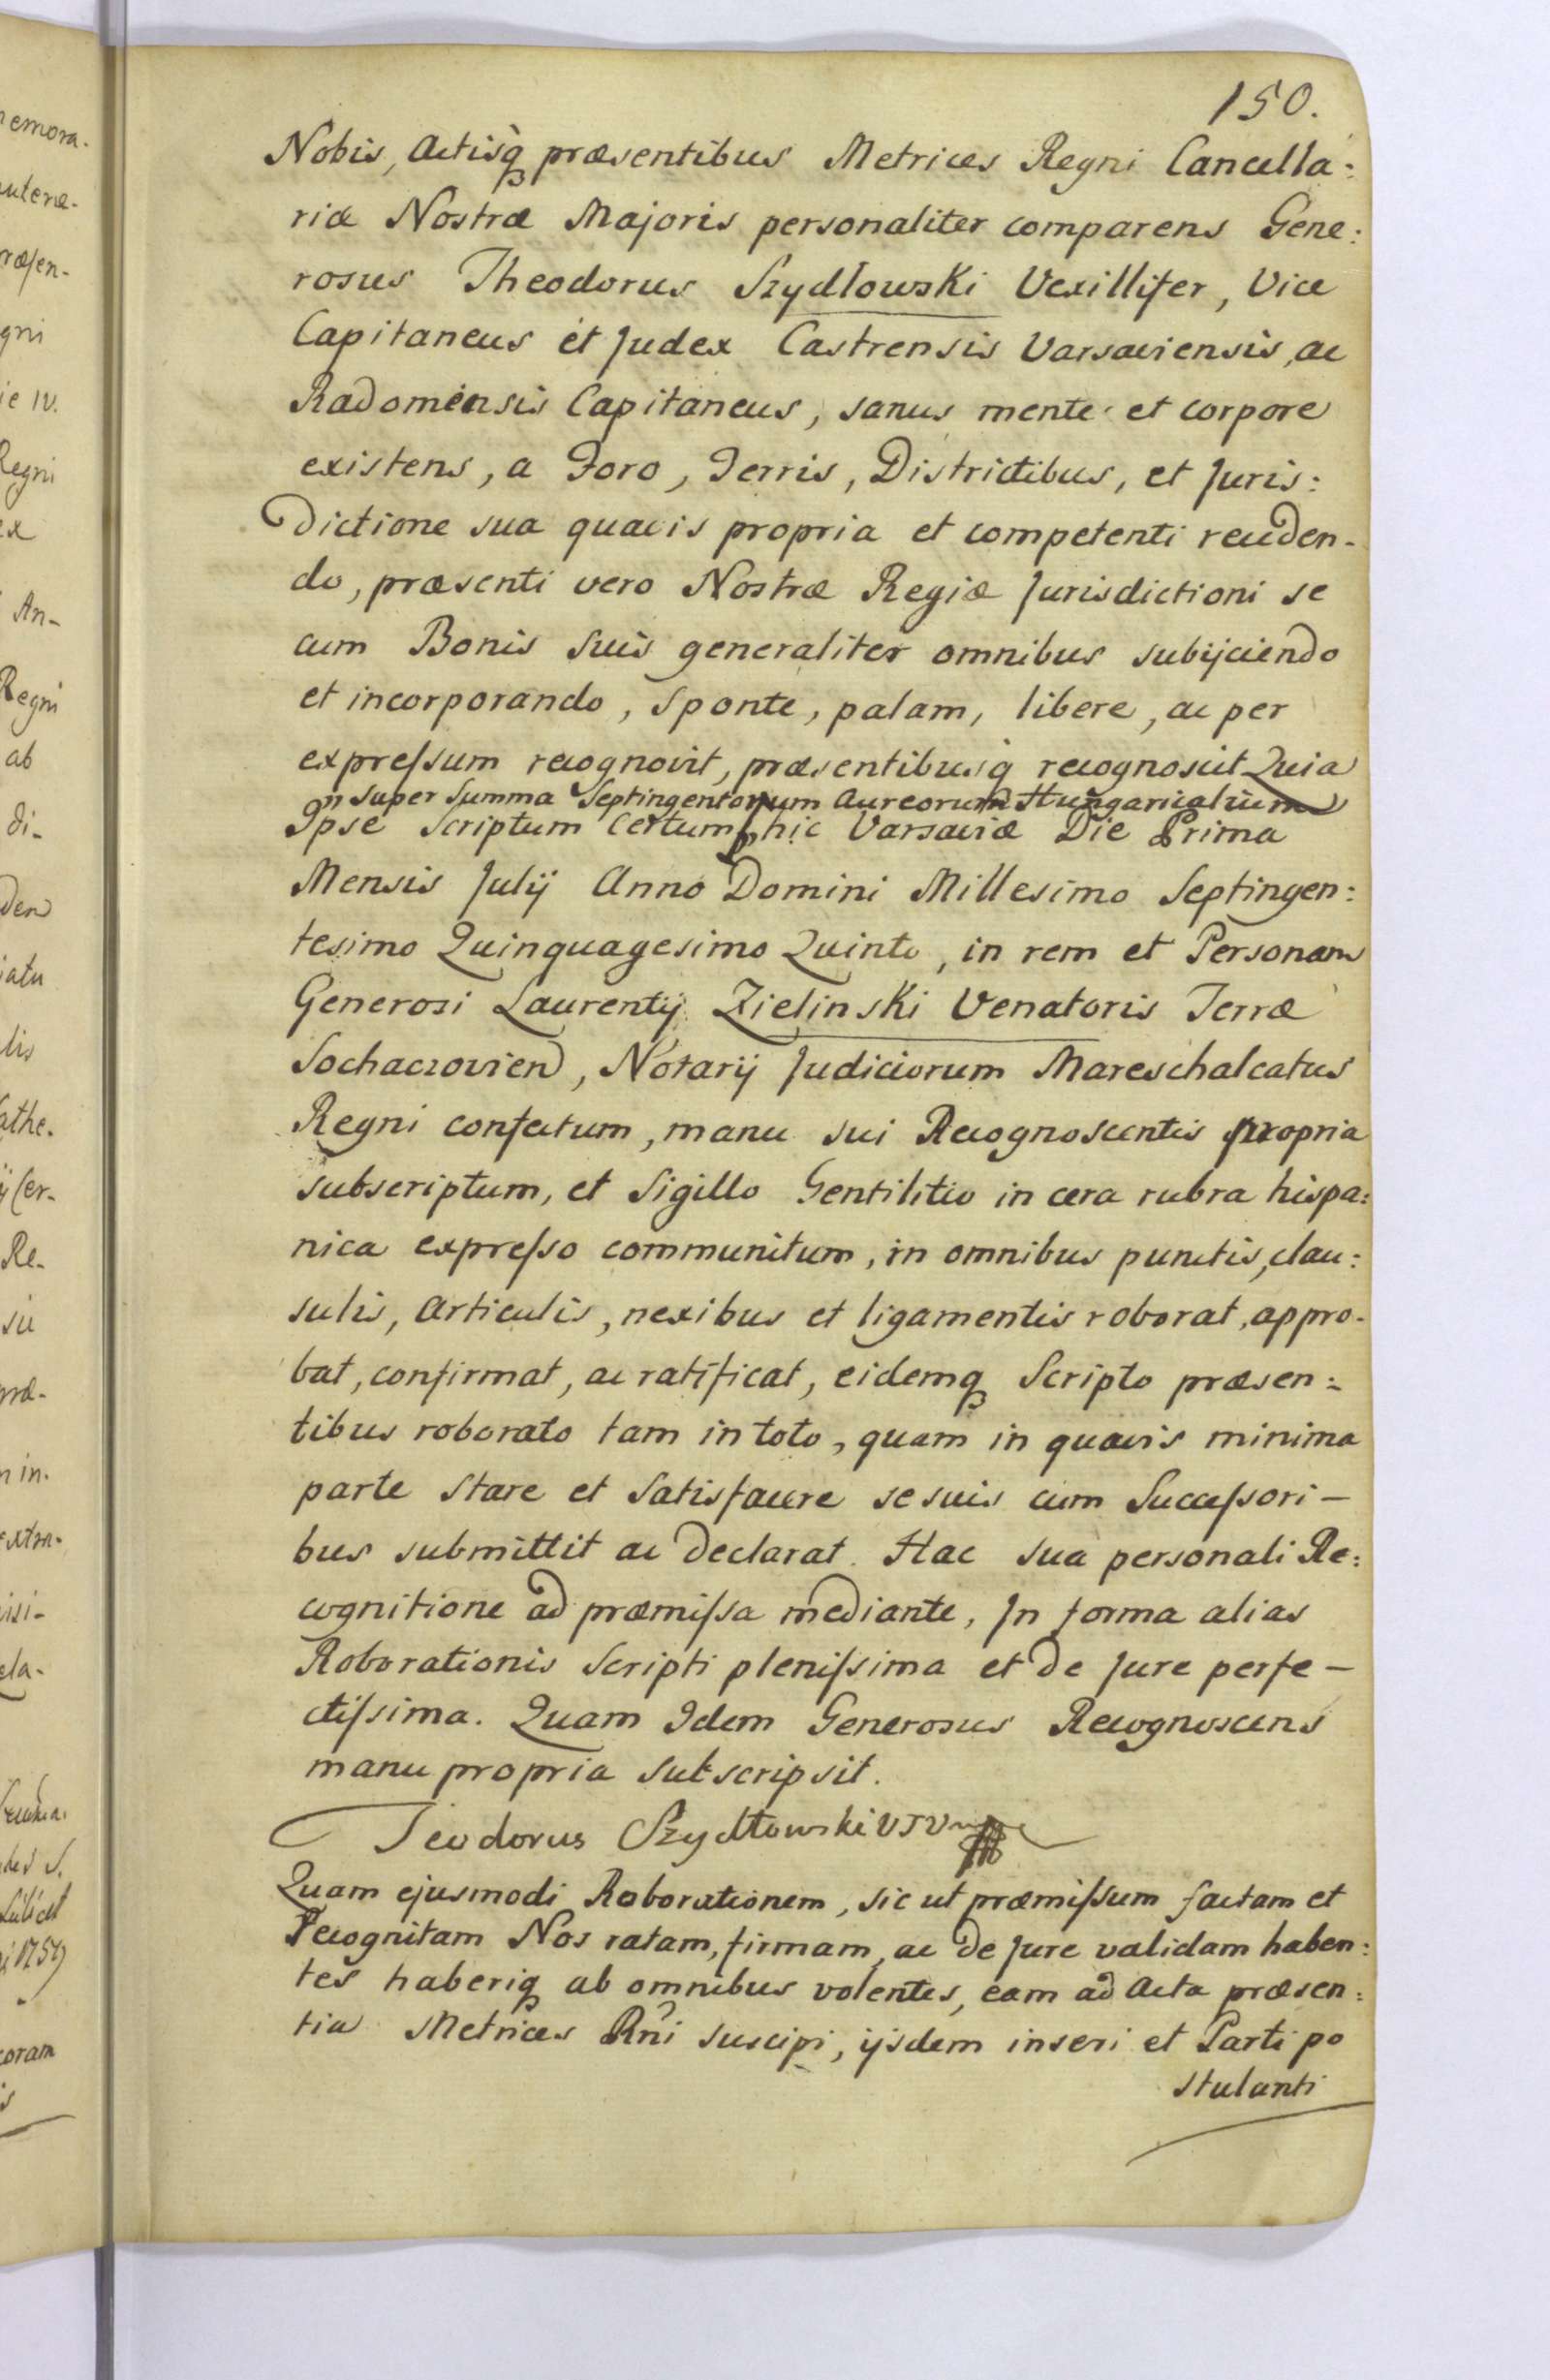 150.
Nobis, Actisq́ præsentibus Metrices Regni Cancella:
riæ Nostræ Majoris personaliter comparens Gene:
rosus Theodorus Szydlowski Vexillifer, Vice
Capitaneus et Judex Castrensis Varsaviensis, ac
Radomiensis Capitaneus, sanus mente et corpore
existens, a Foro, Terris, Districtibus, et Juris:
dictione sua quavis propria et competenti receden-
do, præsenti vero Nostræ Regiæ Jurisdictioni se
cum Bonis suis generaliter omnibus subijciendo
et incorporando, sponte, palam, libere, ac per
expreſsum recognovit, præsentibusq́ recognoscit Quia
super Summa Septingentorum Aureorum Hungaricalium
Ipse Scriptum certum hic Varsaviæ Die Prima
Mensis Julij Anno Domini Millesimo Septingen:
tesimo Quinquagesimo Quinto, in rem et Personam
Generosi Laurentij Zielinski Venatoris Terræ
Sochaczovien, Notarij Judiciorum Mareschalcatus
Regni confectum, manu sui Recognoscentis propria
subscriptum, et Sigillo Gentilitio in cera rubra hispa:
nica expreſso communitum, in omnibus punctis, clau:
sulis, Articulis, nexibus et ligamentis roborat, appro-
bat, confirmat, ac ratificat, eidemq́ Scripto præsen:
tibus roborato tam in toto, quam in quavis minima
parte stare et satisfacere se suis cum Succeſsori-
bus submittit ac declarat. Hac sua personali Re:
cognitione ad præmiſsa mediante, In forma alias
Roborationis Scripti pleniſsima et de Jure perfe-
ctiſsima. Quam Idem Generosus Recognoscens
manu propria subscripsit.
Teodorus Szydłowski
Quam ejusmodi Roborationem, sic ut præmiſsum factam et
Recognitam Nos ratam, firmam, ac de Jure validam haben:
tes haberiq́ ab omnibus volentes, eam ad Acta præsen:
tia Metrices Rni suscipi, ijsdem inseri et Parti po
stulanti
emora.
gni
ie IV.
Regni
An-
Regni
ab
di-
Re-
coram